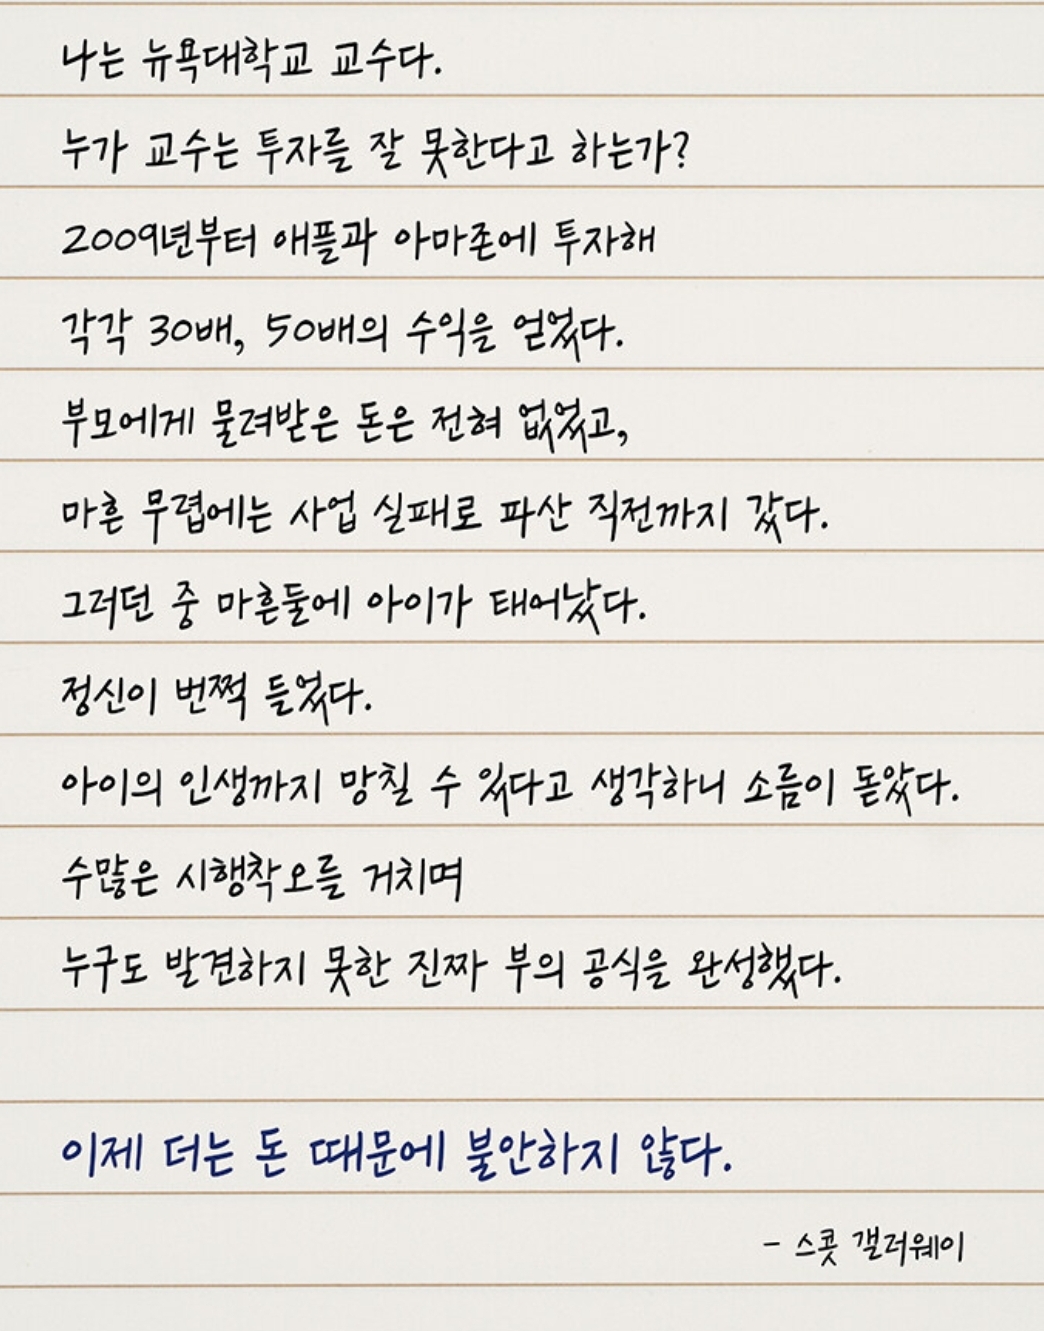 나는 뉴욕대학교 교수다.
누가 교수는 투자를 잘 못한다고 하는가?
2009년부터 애플과 아마존에 투자해
각각 30배, 50배의 수익을 얻었다.
부모에게 물려받은 돈은 전혀 없었고,
마흔 무렵에는 사업 실패로 파산 직전까지 갔다.
그러던 중 마흔둘에 아이가 태어났다.
정신이 번쩍 들었다.
아이의 인생까지 망칠 수 있다고 생각하니 소름이 돋았다.
수많은 시행착오를 거치며
누구도 발견하지 못한 진짜 부의 공식을 완성했다.
이제 더는 돈 때문에 불안하지 않다.
- 스콧 갤러웨이